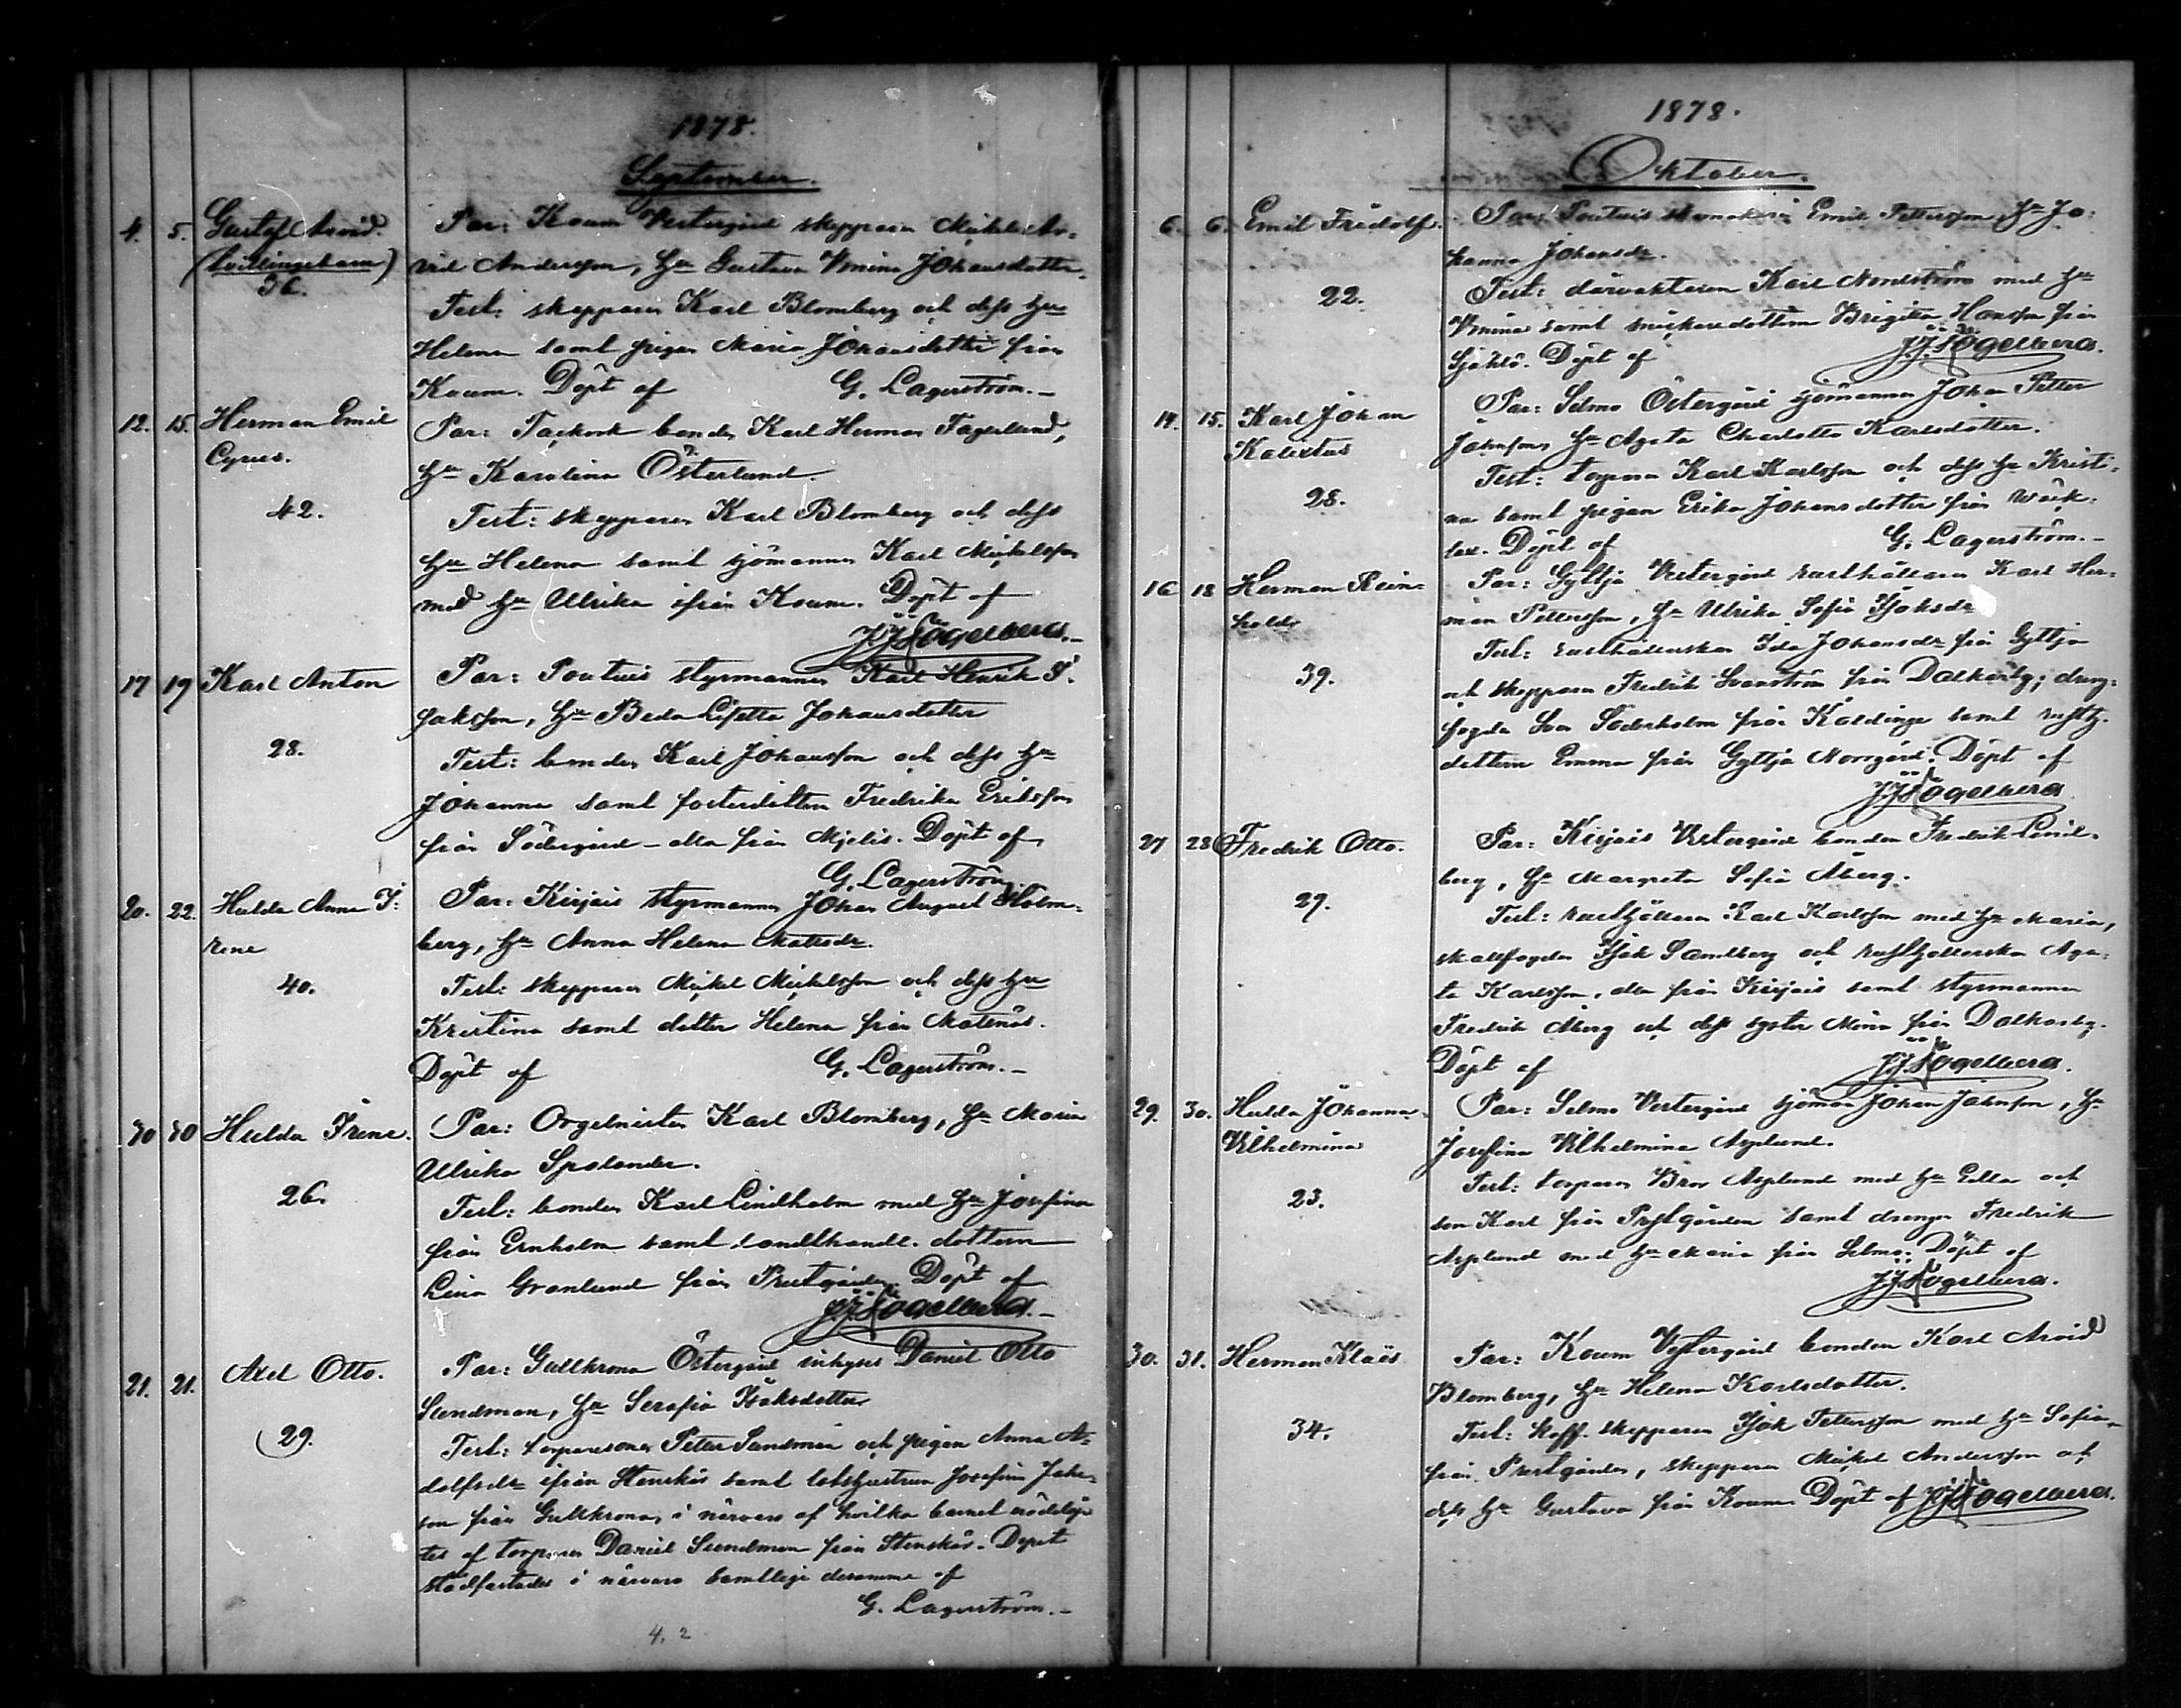 1878.
September.
4. 5. Gustaf Arvid.
(tvillingebarn)
36.
Par: Koum Vestergård skepparen Mickel Ar-
vid Andersson, Hu Gustava Vmina Johansdotter.
Test: skepparen Karl Blomberg och dess hu
Helena samt pigan Maria Johansdotter från
Koum. Döpt af G. Lagerström.-
12. 15. Herman Emil
Cyrus.
42.
Par: bonden Karl Herman Fagerlund,
hu Karolina Österlund.
Test: skepparen Karl Blomberg och dess
hu Helena samt sjömannen Karl Mickelsson
med hu Ulrika ifrån Koum. Döpt af
J.J. Fogelberg.-
17 19 Karl Anton
28.
Par: Pontuis styrmannen Karl Henrik I-
saksson, hu Beda Lisetta Johansdotter
Test: bonden Karl Johansson och dess hu
Johanna samt fosterdottern Fredrika Eriksson
från Södergård - alla från Mjelis. Döpt af
G. Lagerström
20. 22. Hulda Anna I-
rene
40.
Par: Kirjais styrmannen Johan August Holm-
berg, hu Anna Helena Matsdr.
Test: skepparen Mickel Mickelsson och dess hu
Kristina samt dotter Helena från Matnäs.
Döpt af G. Lagerström.-
30 30 Hulda Irene.
26.
Par: Orgelnisten Karl Blomberg, hu Maria
Ulrika Spolander.
Test: bonden Karl Lindholm med hu Josefina
från Ernholm samt landthandl. dottern
Lina Granlund från Prestgården. Döpt af
J.J. Fogelberg.-
21. 21. Axel Otto.
29.
Par: Gullkrona Östergård inhyses Daniel Otto
Sundman, hu Serafia Isaksdotter
Test: torparesonen Peter Sundman och pigan Anna A-
dolfsdr ifrån Stenskär samt lotshustrun Josefina Jahn-
son från Gullkrona, i närvaro af hvilka barnet nöddöp-
tes af torparen Daniel Sundman från Stenskär. Dopet
stadfästades i närvaro samtliga desamma af
G. Lagerström.-
4, 2
1878.
Oktober.
6. 6. Emil Fridolf.
22.
Par: Pontuis Emil Pettersson, hu Jo-
hanna Johansdr.
Test: Karl Nordström med hu
Vmina samt snickaredottern Brigitta Hansson från
Döpt af J.J. Fogelberg.
14. 15. Karl Johan
Kalixtus
28.
Par: Selmo Östergård sjömannen Johan Petter
Johnsson, hu Agata Charlotta Karlsdotter.
Test: torparen Karl Karlsson och dess hu Kristi-
na samt pigan Erika Johansdotter från
Döpt af G. Lagerström.-
16 18 Herman Rein-
hold
39.
Par: Gyttja Vestergård rusthållaren Karl Her-
man Pettersson, hu Ulrika Sofia Isaksdr
Test: rusthållerskan Ida Johansdr från Gyttja
och skepparen Fredrik Svanström från Dalkarby; dreng-
fogden Söderholm från Käldinge samt rusth.
dottern Emma från Gyttja Norrgård. Döpt af
J.J. Fogelberg
27 28 Fredrik Otto.
29.
Par: Kirjais Vestergård bonden Fredrik Lind-
berg, hu Margreta Sofia Åberg.
Test: rusthållaren Karl Karlsson med hu Maria,
skallfogden Isak Sandberg och rusthållerskan Aga-
ta Karlsson, alla från Kirjais samt styrmannen
Fredrik Åberg och dess syster Mina från Dalkarby.
Döpt af J.J. Fogelberg.
29. 30. Hulda Johanna
Vilhelmina
23.
Par: Selmo Vestergård sjöman Johan Johnsson, hu
Josefina Vilhelmina Asplund.
Test: torparen Bror Asplund med hu Edla och
son Karl från Prestgården samt drengen Fredrik
Asplund med hu Maria från Selmo. Döpt af
J.J. Fogelberg.
30. 31. Herman Klaës
34.
Par: Koum Vestergård bonden Karl Arvid
Blomberg, hu Helena Karlsdotter.
Test: Koff. skepparen Isak Pettersson med hu Sofia
från Prestgården, skepparen Mickel Andersson och
dess hu Gustava från Koum. Döpt af J.J. Fogelberg.